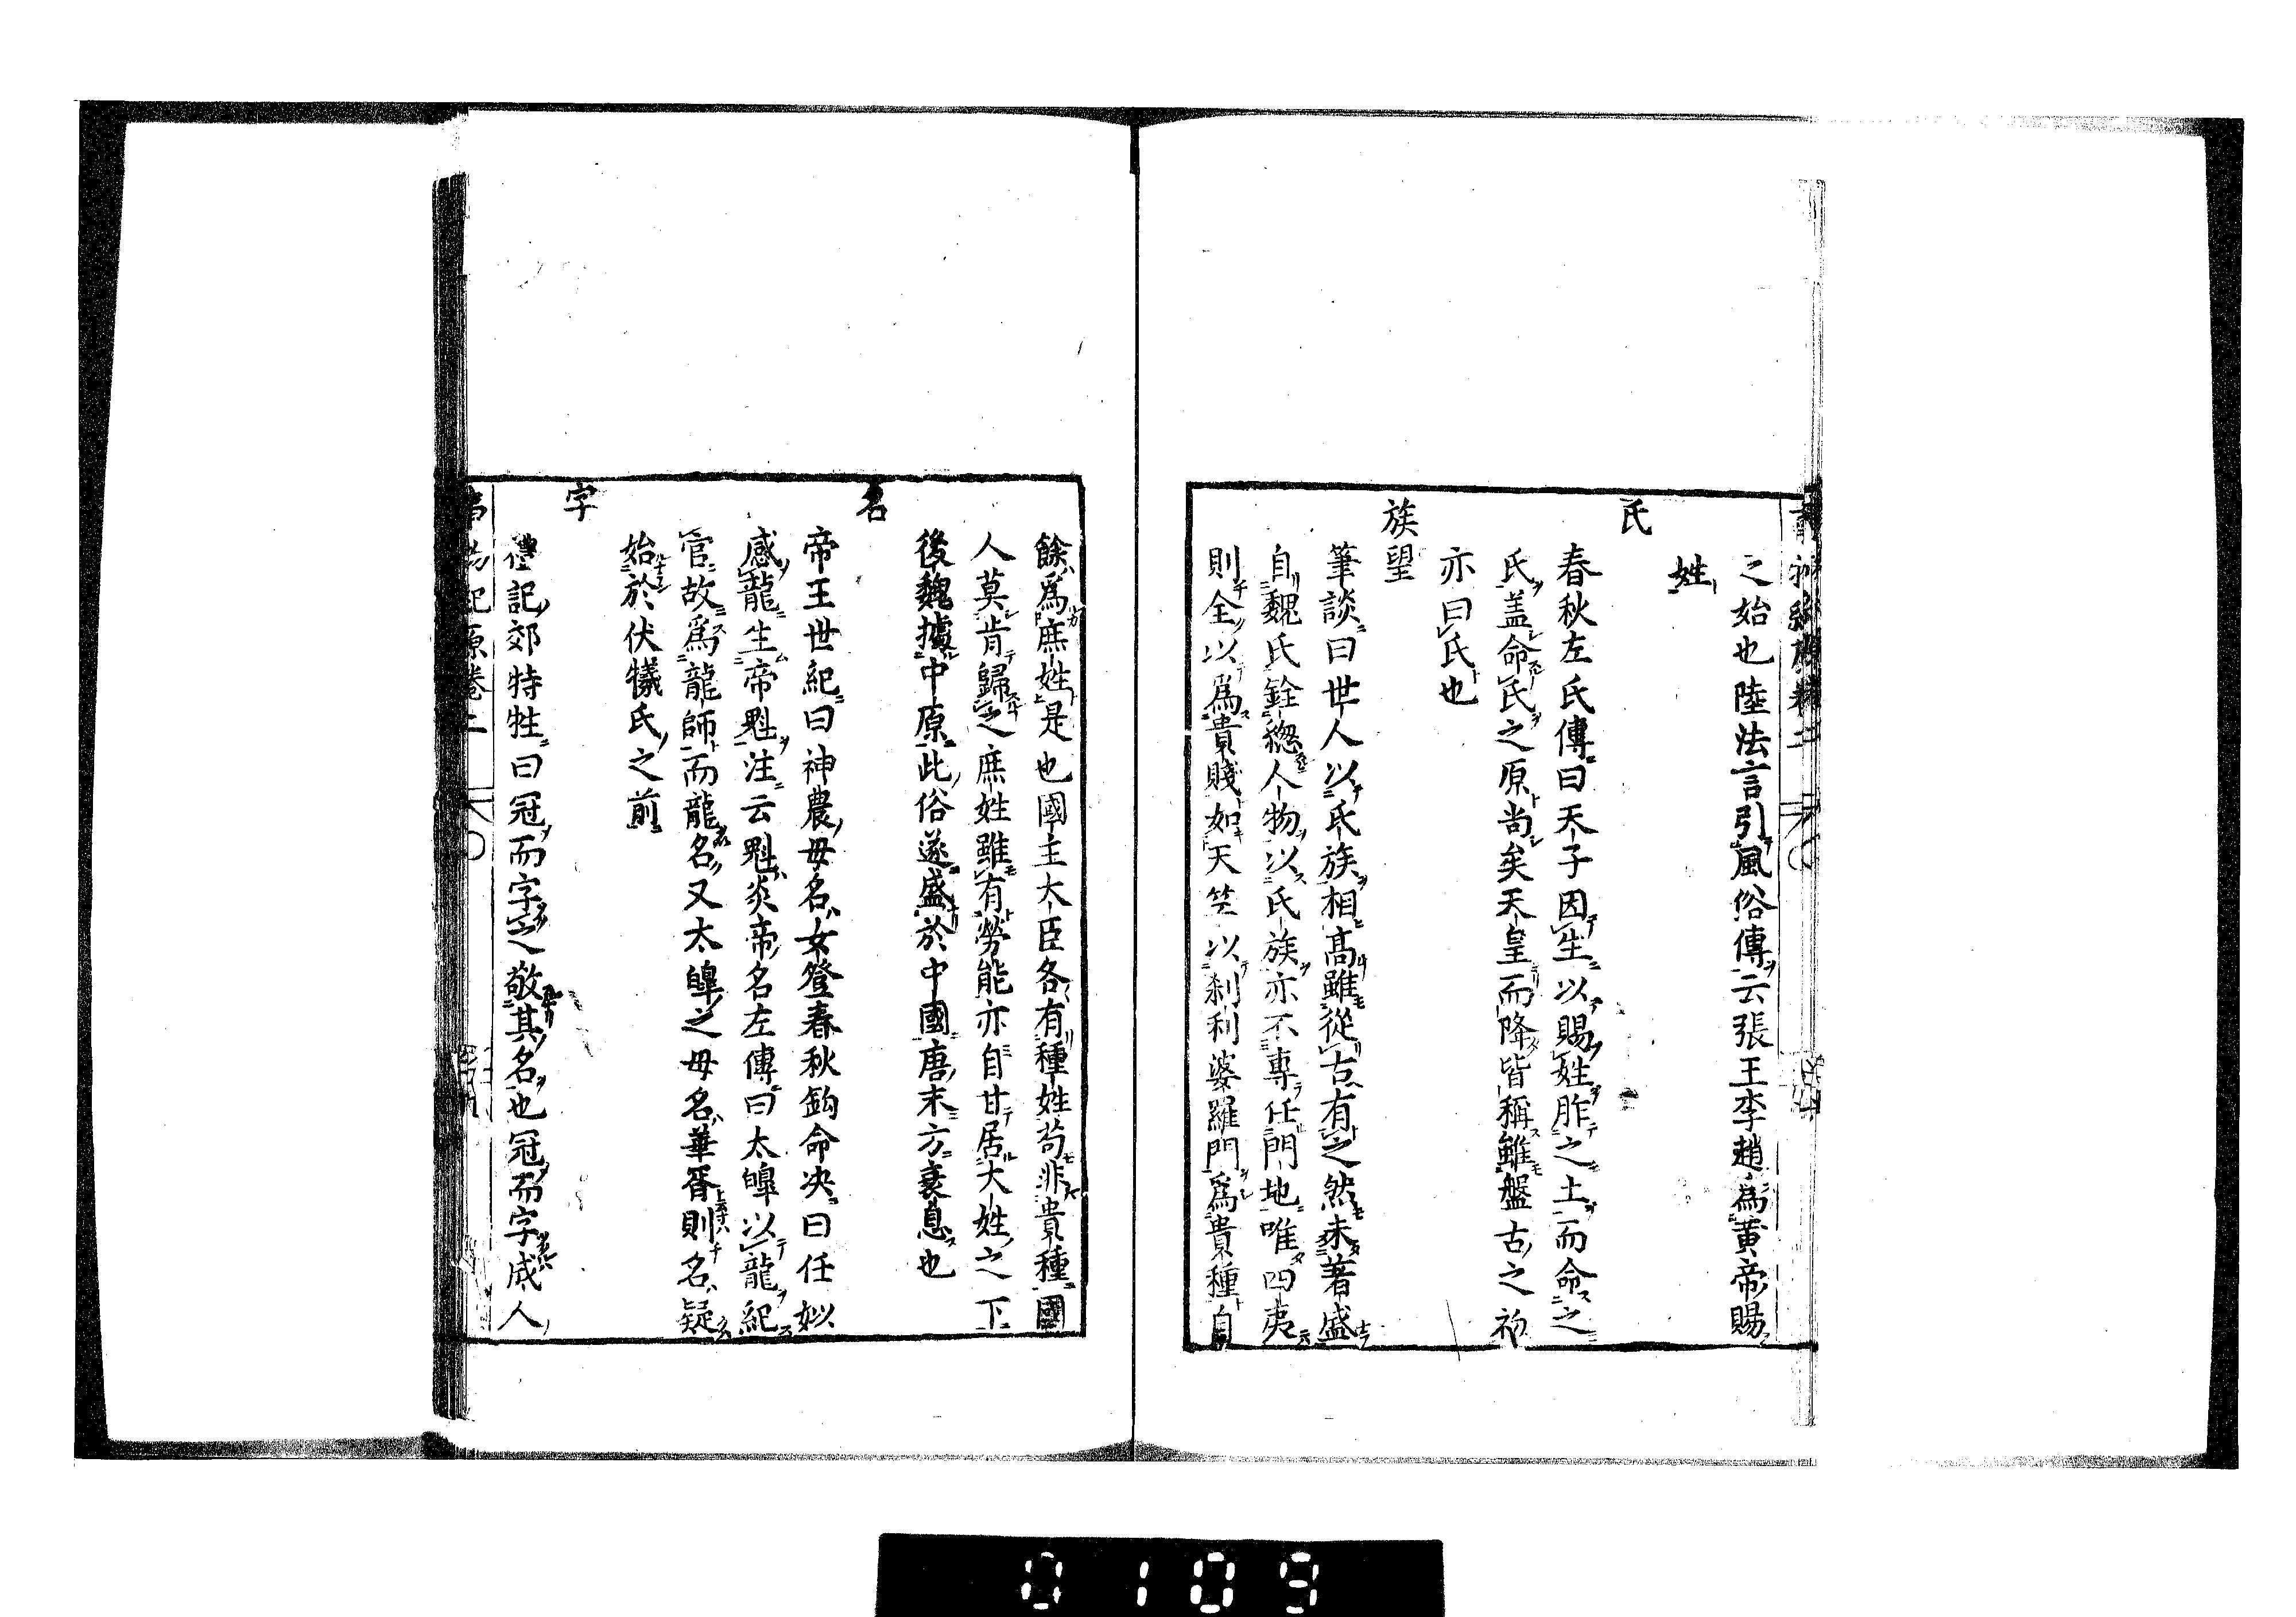 之始也陸法言引風俗傳云張王李趙為黄帝賜
姓
氏
春秋左氏傳曰天子因生以賜姓胙之土而命之
氏盖命氏之原尚矣天皇而降皆稱雖盤古之初
亦曰氏也
族望
筆談曰世人以氏族相髙雖從古有之然未著盛
自魏氏銓緫人物以氏族亦不專任門地唯四夷
則全以爲貴賤如天竺以刹利婆羅門爲貴種自
餘爲庶姓是也國主大臣各有種姓苟非貴種國
人莫肯歸之庶姓雖有勞能亦自甘居大姓之下
後魏據中原此俗遂盛於中國唐末方衰息也
名
帝王世紀曰神農母名女登春秋鈎命决曰任姒
感龍生帝魁注云魁炎帝名左傳曰太皥以龍紀
官故爲龍師而龍名又太皥之母名華胥則名疑
始於伏犧氏之前
字
禮記郊特牲曰冠而字之敬其名也冠而字成人
0109